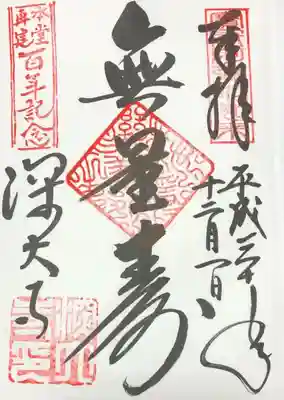 奉拝
平成三十年
十二月一日
無量寿
本堂再建
百年記念
深大寺